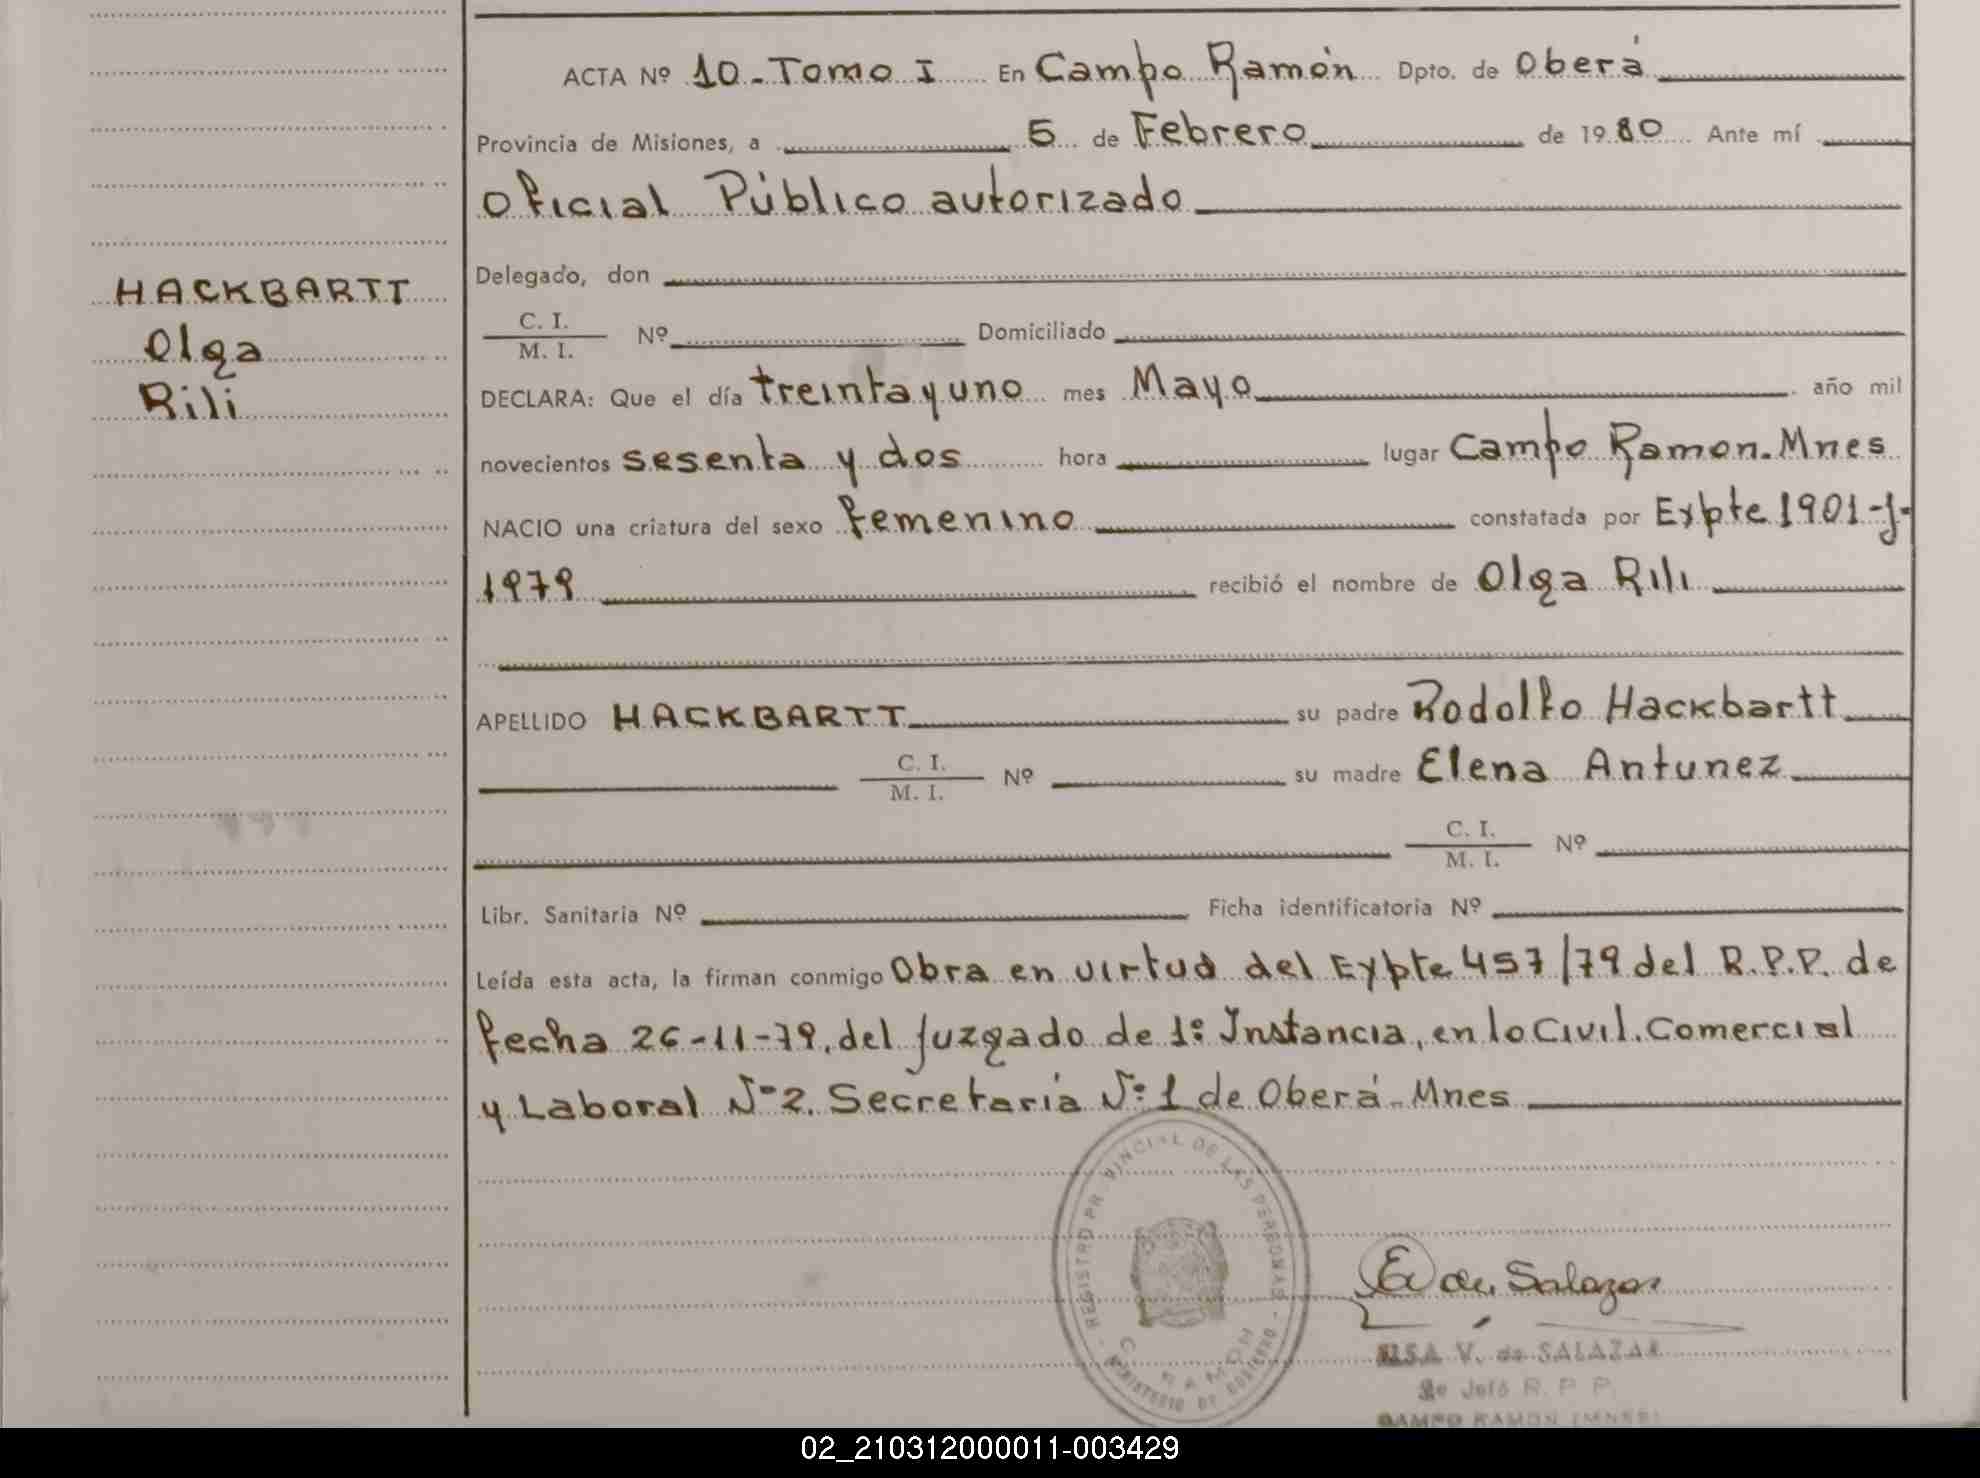 ACTA Nº 10 - Tomo I En Campo Ramón Dpto. de Oberá
Provincia de Misiones, a 5 de Febrero de 1980 Ante mí
Oficial Público autorizado
Delegado, don
HACKBARTT
Olga
Rili
C. I.
M. I. Nº Domiciliado
DECLARA: Que el día treinta y uno mes Mayo año mil
novecientos sesenta y dos hora lugar Campo Ramon. Mnes
NACIO una criatura del sexo femenino constatada por Expte 1901-J-
1979 recibió el nombre de Olga Rili
APELLIDO HACKBARTT su padre Rodolfo Hackbartt
C. I.
M. I. Nº su madre Elena Antunez
C. I.
M. I. Nº
Libr. Sanitaria Nº Ficha identificatoria Nº
Leída esta acta, la firman conmigo Obra en virtud del Expte 457/79 del R.P.P. de
fecha 26-11-79, del juzgado de 1º Instancia, en lo Civil. Comercial
y Laboral Nº 2. Secretaría Nº 1 de Oberá - Mnes
REGISTRO PROVINCIAL DE LAS PERSONAS
C. RAMON
MINISTERIO DE GOBIERNO
E de Salazar
ELSA V. de SALAZAR
Jefe R. P. P.
CAMPO RAMON (MNES)
02_210312000011-003429